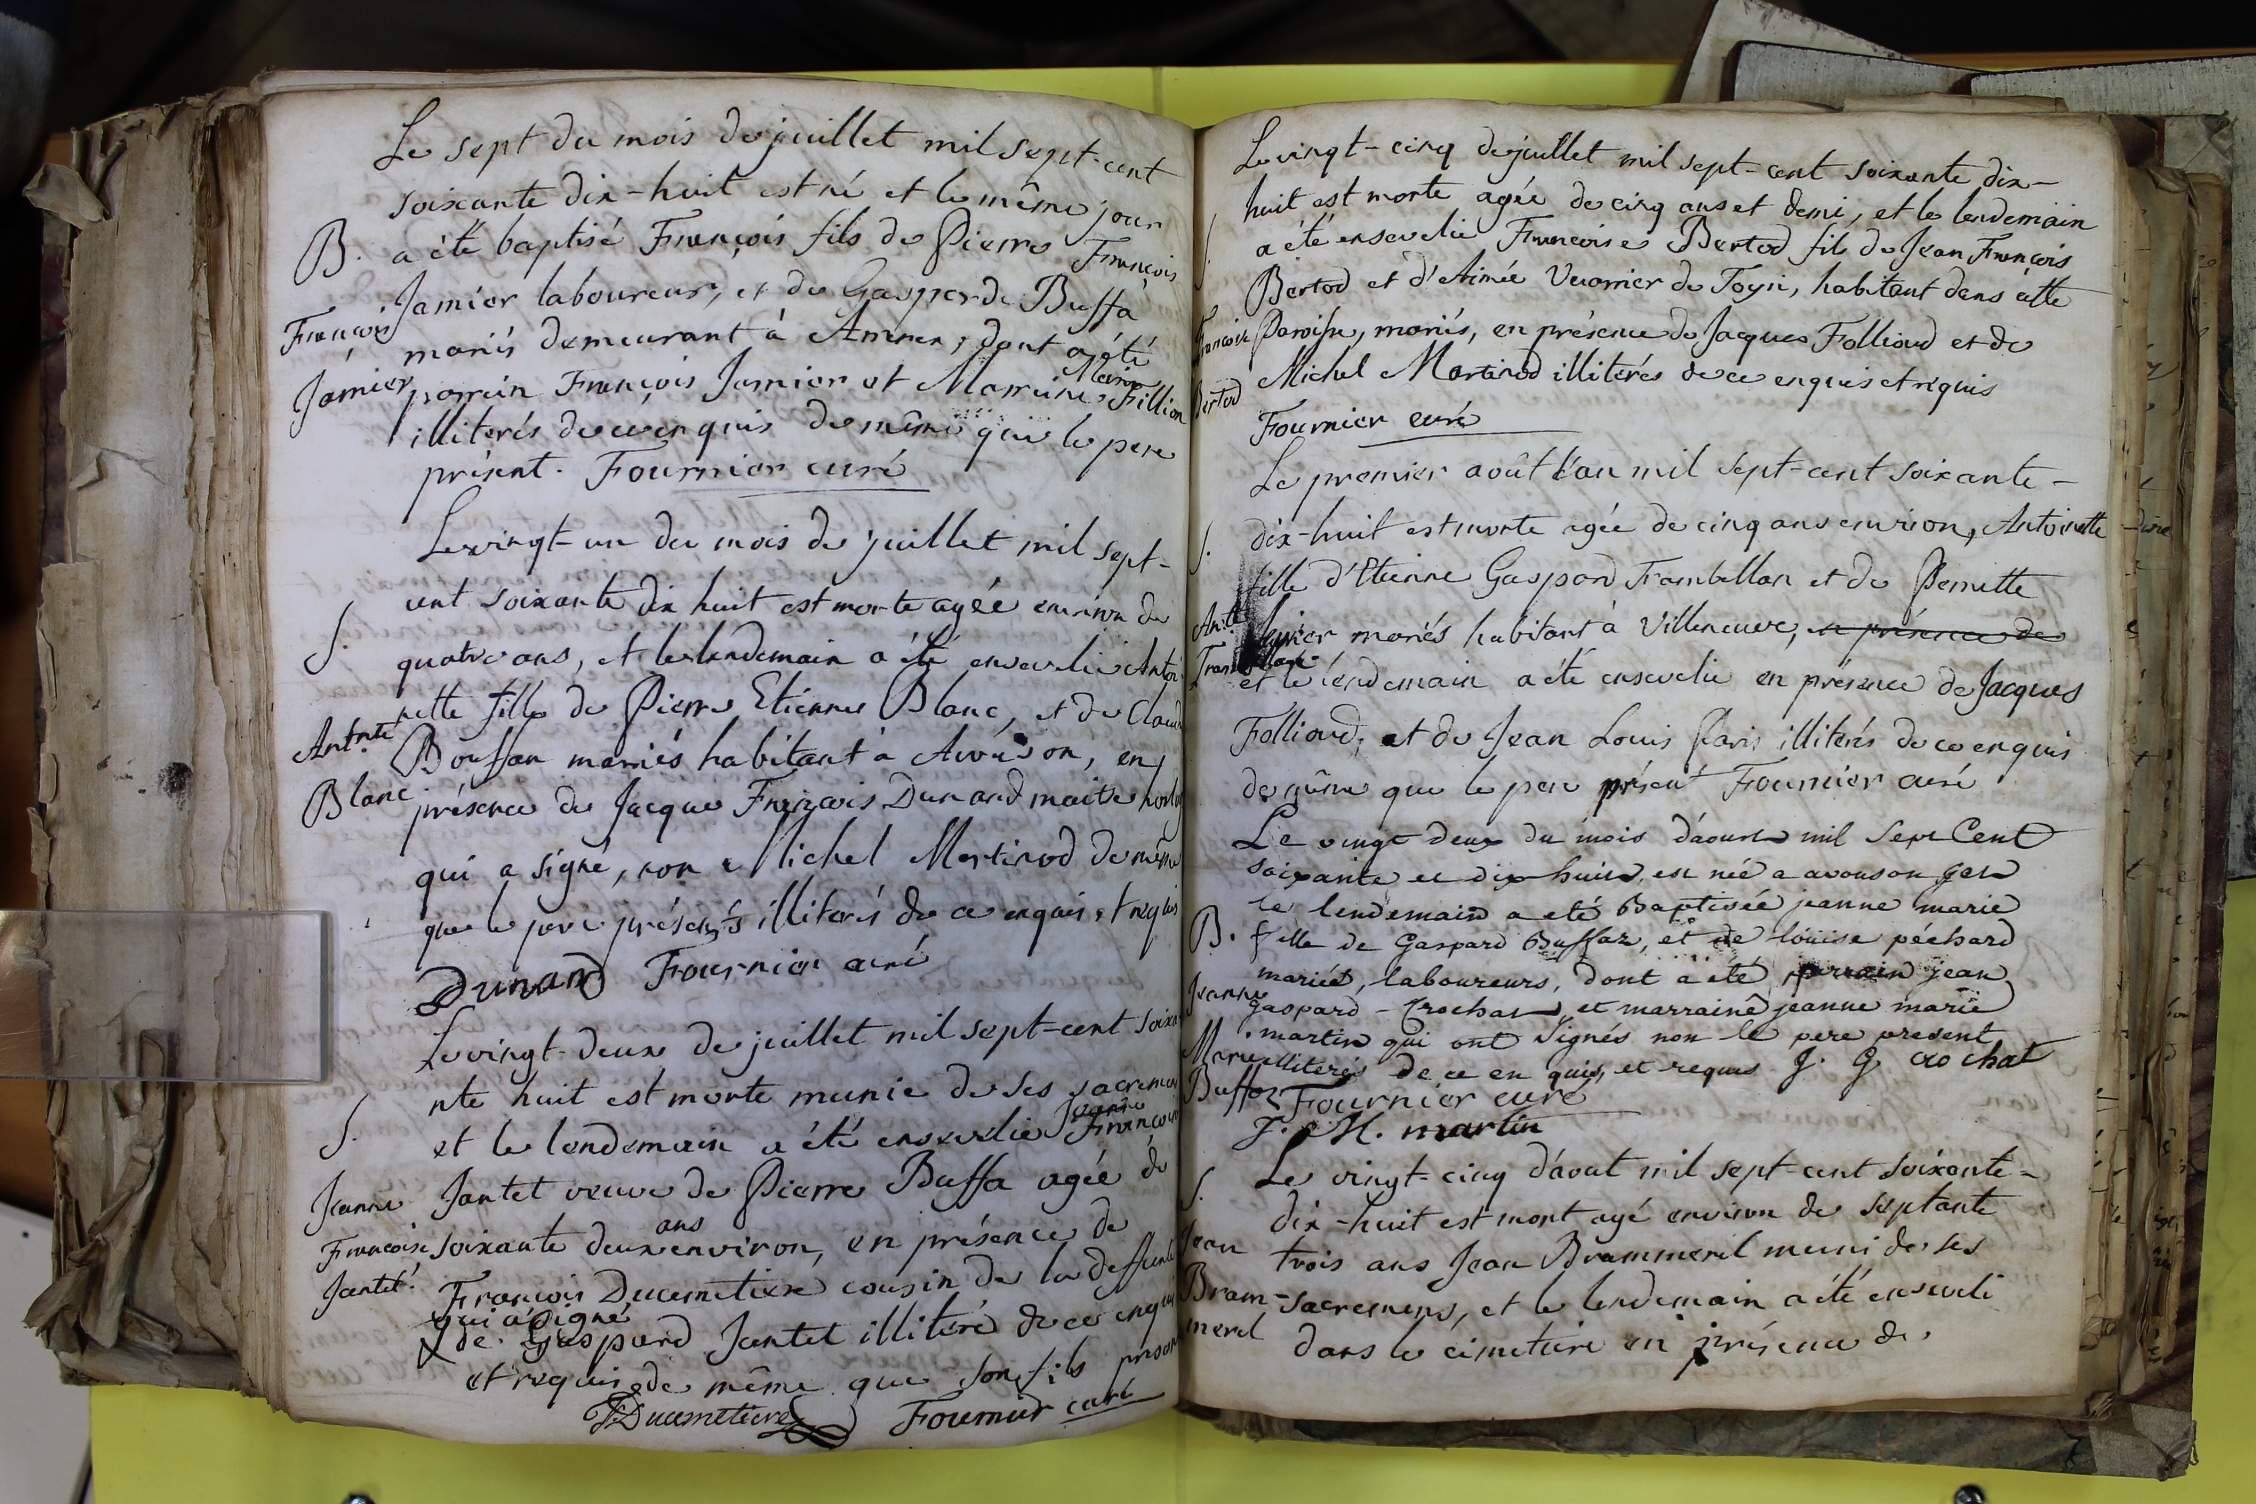 Le sept du mois de juillet mil sept-cent
soixante dix-huit est né et le même jour
B. a été baptisé François fils de Pierre François
Jamier laboureur, et de Gasparde Buffa
François
mariés demeurant à Annen, dont a été
Jamier
parrain François Jamier et Marraine Marie Fillion
illiterés de ce enquis de même que le pere
présent. Fournier curé
Le vingt-un du mois de juillet mil sept-
cent soixante dix huit est morte agée environ de
S. quatre ans, et le lendemain a été ensevelie Antoi
nette fille de Pierre Etienne Blanc, et de Claud
Antnte
Bouffan mariés habitant à Avouson, en
Blanc
présence de Jacque François Dunand maitre horlog
qui a signé, non Michel Martinod de même
que le pere présents illiterés de ce enquis et requis
Dunand Fournier curé
Le vingt-deux de juillet mil sept-cent soixa
nte huit est morte munie de ses sacremens
S. et le lendemain a été ensevelie Jeanne Françoise
Jeanne
Jantet veuve de Pierre Buffa agée de
Françoise
soixante deux ans environ, en présence de
Jantet.
François Ducimetiere cousin de la deffunte
qui a signé
& de Gaspard Jantet illitéré de ce enquis
et requis de même que son fils présent
F. Ducimetiere Fournier curé
Le vingt-cinq de juillet mil sept-cent soixante dix-
huit est morte agée de cinq ans et demi, et le lendemain
S. a été ensevelie Francoise Bertod fils de Jean François
Bertod et d'Aimée Vuarrier de Togni, habitant dans cette
Francoise
Paroisse, mariés, en présence de Jacques Folliond et de
Bertod
Michel Martinod illiterés de ce enquis et requis
Fournier curé
Le premier août l'an mil sept-cent soixante-
S. dix-huit est morte agée de cinq ans environ, Antoinette
fille d'Etienne Gaspard Trambellan et de Pernette
Ant.te
mariés habitant à Villeneuve, en présence de
et le lendemain a été ensevelie en présence de Jacques
Folliond, et de Jean Louis Paris illiterés de ce enquis
de même que le pere présent Fournier curé
Le vingt deux du mois d'aoust mil sept Cent
soixante et dix huit, est née a avouson get
le lendemain a eté Baptisée jeanne marie
B. fille de Gaspard Buffaz, et de loüise péchard
mariés, laboureurs, dont a été parrain jean
Jeanne
Gaspard - Crochat et marraine jeanne marie
martin qui ont signés non le pere present
Marie
illiterés de ce en quis, et requis J. G crochat
Buffaz
Fournier curé
J. M. martin
Le vingt-cinq d'aout mil sept-cent soixante-
S. dix-huit est mort agé environ de septante
Jean
trois ans Jean Brammerel muni de ses
Bram-
sacremens, et le lendemain a été enseveli
merel
dans le cimetiere en présence de